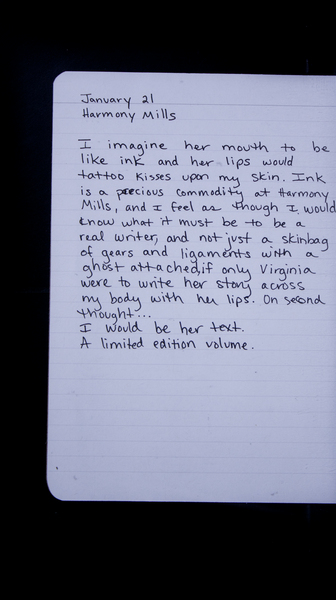 January 21
Harmony Mills
I imagine her mouth to be
like ink and her lips would
tattoo kisses upon my skin. Ink
is a precious commodity at Harmony
Mills, and I feel as though I would
know what it must be to be a
real writer, and not just a skinbag
of gears and ligaments with a
ghost attached, if only Virginia
were to write her story across
my body with her lips. On second
thought...
I would be her text.
A limited edition volume.